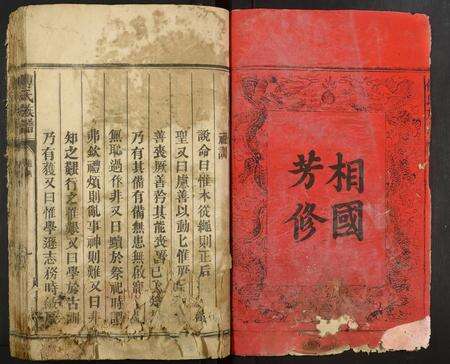 相國
芳修
訓
說命曰惟木從繩則正后
聖又曰慮善以動
善喪厥善矜其能喪
乃有其備有備無患無啟
無恥過作非又曰黷於祭祀時謂
弗欽禮煩則亂事神則難又曰非
知之艱行之惟艱又曰學於古訓
乃有獲又曰惟學遜志務時敏厥
氏族譜